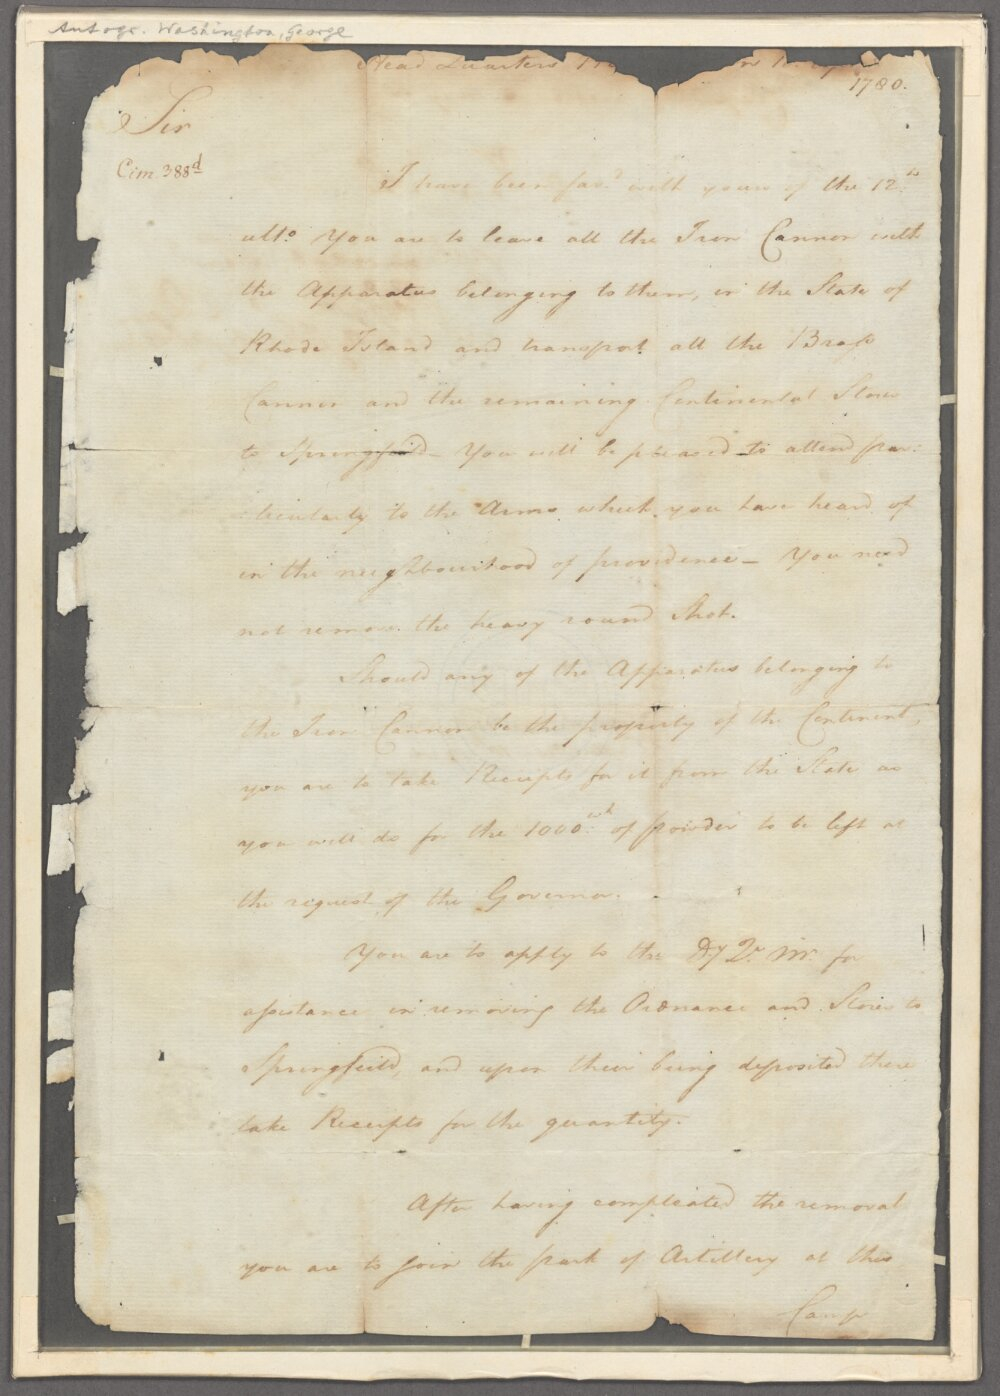 Autogr. Washington, George
Head Quarters
1780.
Sir
Cim. 388d
I have been fav.d with yours of the 12.th
ulto. You are to leave all the Iron Cannon with
the Apparatus belonging to them, in the State of
Rhode Island and transport all the Brass
Cannon and the remaining Continental Stores
to Springfield – You will be pleased to attend par:
:ticularly to the Arms which you have heard of
in the neighbourhood of providence – You need
not remove the heavy round Shot.
Should any of the Apparatus belonging to
the Iron Cannon be the property of the Continent,
you are to take Receipts for it from the State as
you will do for the 1000.wt of powder to be left at
the request of the Governor.
You are to apply to the Dy Qr. Mr. for
assistance in removing the Ordnance and Stores to
Springfield, and upon their being deposited there
take Receipts for the quantity.
After having compleated the removal
you are to join the park of Artillery at this
Camp